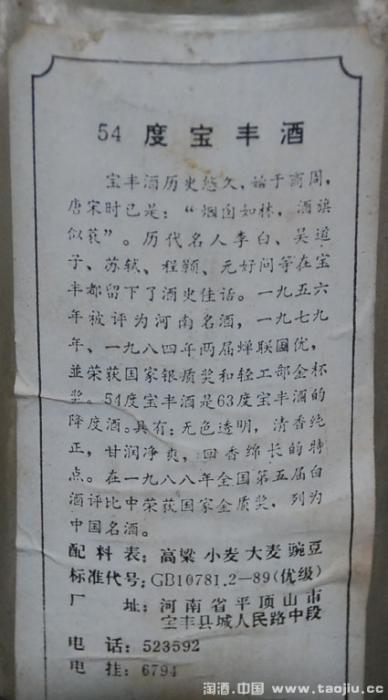 54 度宝丰酒
宝丰酒历史悠久，始于商周，
唐宋时已是：“烟囱如林，酒旗
似荻”。历代名人李白、吴道
子、苏轼、程颢、元好问等在宝
丰都留下了酒史佳话。一九五六
年被评为河南名酒，一九七九
年、一九八四年两届蝉联国优，
並荣获国家银质奖和轻工部金杯
奖。54度宝丰酒是63度宝丰酒的
降度酒。具有：无色透明，清香纯
正，甘润净爽，回香绵长的特
点。在一九八八年全国第五届白
酒评比中荣获国家金质奖，列为
中国名酒。
配料表：高粱 小麦 大麦 豌豆
标准代号：GB10781.2—89(优级)
厂 址：河南省平顶山市
宝丰县城人民路中段
电 话：523592
电 挂：6794
淘酒.中国 www.taojiu.cc